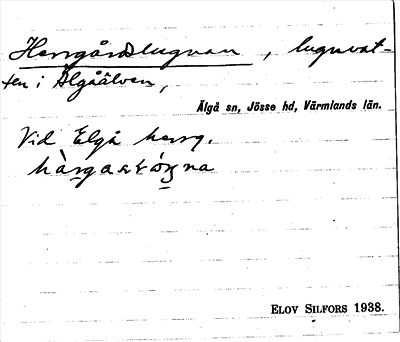 Herrgårdslugnan, lugnvat-
ten i Älgåälven,
Älgå sn, Jösse hd, Värmlands län.
Vid Elgå herrg.
ELOV SILFORS 1938.